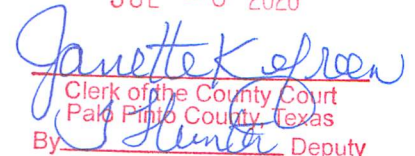 2020
Janette K. Green
Clerk of the County Court
Palo Pinto County, Texas
By J Hunter Deputy